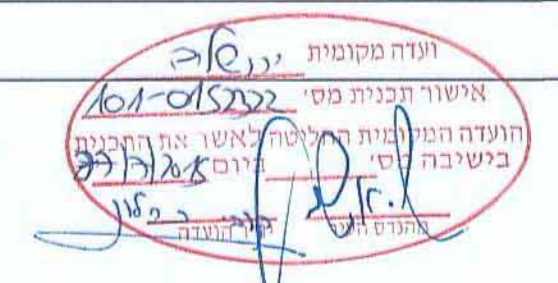 ועדה מקומית ירושלים
אישור תכנית מס' 101-0152272
הועדה המקומית החליטה לאשר את התכנית
בישיבה מס' ביום
מהנדס העיר הועדה